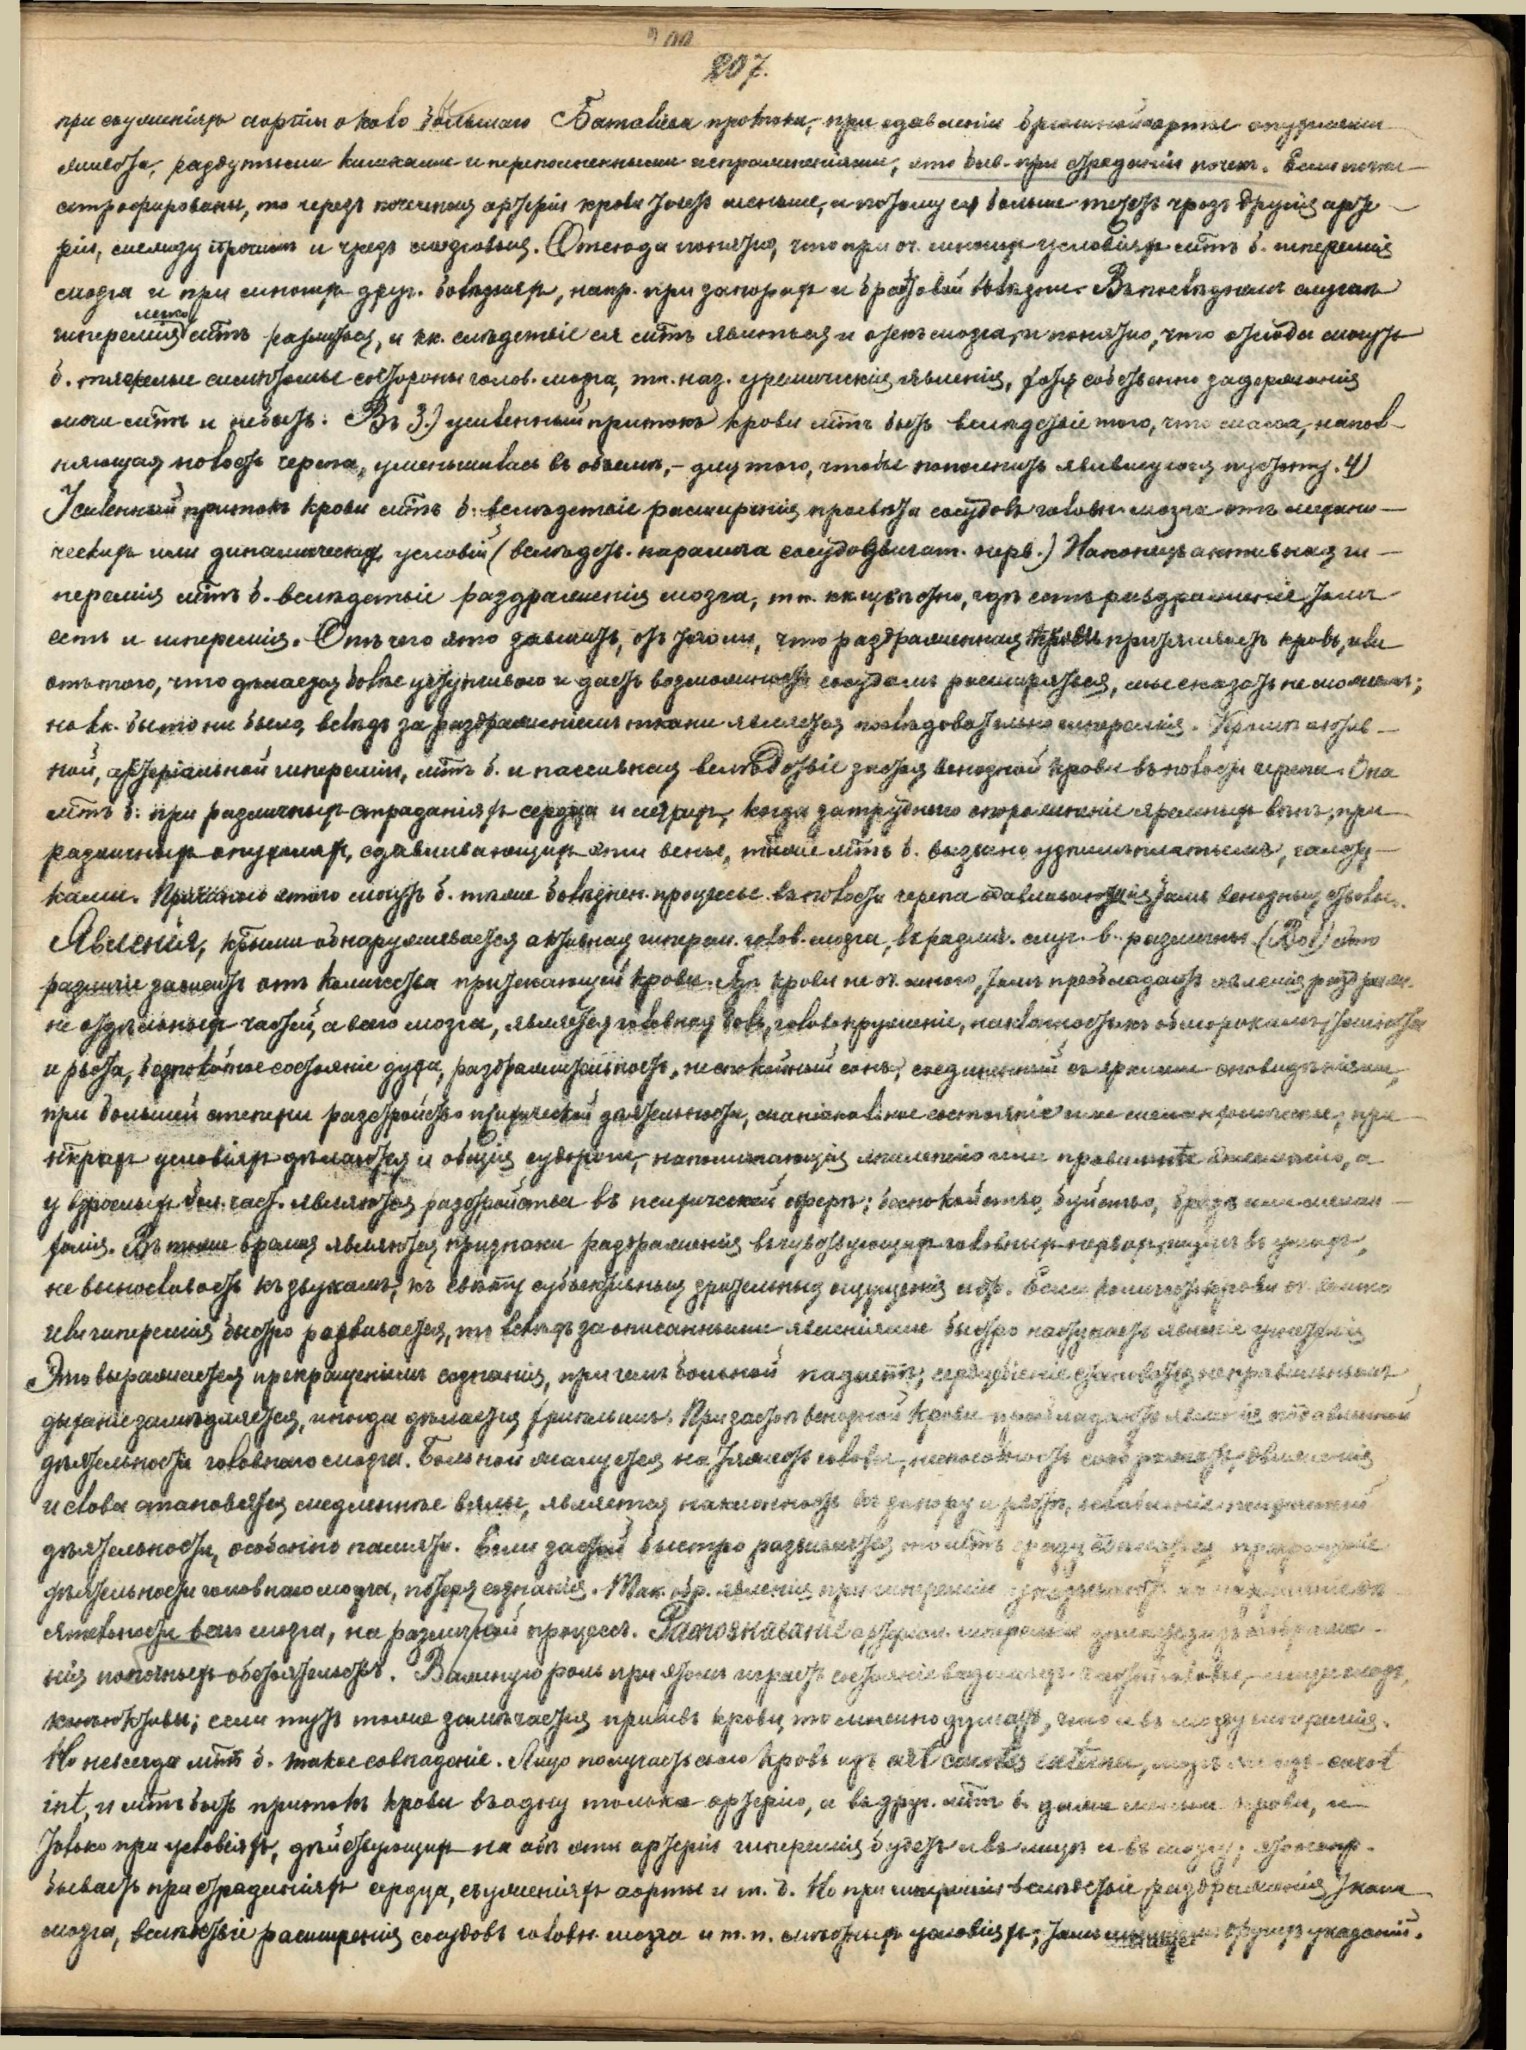 207.
при съуженіяхъ аорты около бывшаго Баталова протока, при сдавленіи брюшной аорты опухолями
живота, раздутыми кишками и переполненными испражненіями, это быв. при страданіи почекъ. Если почки
атрофированы, то черезъ почечныя артеріи крови течетъ меньше, а потому ея больше течетъ чрезъ другія арте-
ріи, между прочимъ и чрезъ мозговыя. Отсюда понятно, что при оч. многихъ условіяхъ мтъ б. гиперемія
мозга и при многихъ друг. болѣзняхъ, напр. при запорахъ и Брайтовой болѣзни. Въ послѣднемъ случаѣ
гиперемія легко мтъ развиться, и кк. слѣдствіе ея мтъ явиться и отекъ мозга, и понятно, что отсюда могутъ
б. тяжелые симптомы со стороны голов. мозга, тк. наз. уремическія явленія, хотя собственно задержанія
мочи мтъ и не быть. Въ 3.) усиленный притокъ крови мтъ быть вслѣдствіе того, что масса, напол-
няющая полость черепа, уменьшилась въ объемѣ, - для того, чтобы пополнить явившуюся пустоту. 4)
Усиленный притокъ крови мтъ б. вслѣдствіе расширенія просвѣта сосудовъ головн. мозга отъ механи-
ческихъ или динамическихъ условій (вслѣдст. паралича сосудодвигат. нерв.) Наконецъ активная ги-
перемія мтъ б. вслѣдствіе раздраженія мозга, тк. кк. извѣстно, гдѣ есть раздраженіе, тамъ
есть и гиперемія. Отъ чего это зависитъ, отъ того ли, что раздраженная ткань притягиваетъ кровь, или
отъ того, что дѣлается болѣе уступчивою и даетъ возможность сосудамъ расширяться, мы сказать не можемъ;
но кк. бы то ни было, вслѣдъ за раздраженіемъ ткани является послѣдовательно гиперемія. Кромѣ актив-
ной, артеріальной гипереміи, мтъ б. и пассивная вслѣдствіе застоя венозной крови въ полости черепа. Она
мтъ б. при различныхъ страданіяхъ сердца и легкихъ, когда затруднено опорожненіе яремныхъ венъ, при
различныхъ опухоляхъ, сдавливающихъ эти вены, также мтъ б. вызвано узкимъ платьемъ, галсту-
ками. Причиною этого могутъ б. также болѣзнен. процессы въ полости черепа сдавливающіе тамъ венозные стволы.
Явленія, ктрыми обнаруживается активная гиперем. голов. мозга, въ различ. случ. б. различны. (Во 1) это
различіе зависитъ отъ количества притекающей крови. Гдѣ крови не оч. много, тамъ преобладаютъ явленія раздраж.
не отдѣльныхъ частей, а всего мозга, является головная боль, головокруженіе, наклонность къ обморокамъ, тошнота
и рвота, безпокойное состояніе духа, раздражительность, неспокойный сонъ, соединенный съ яркими сновидѣніями,
при большей степени разстройство психической дѣятельности, маніакальное состояніе или меланхолическое, при
нѣкрыхъ условіяхъ дѣлаются и общія судороги, напоминающія эпилепсію или правильнѣе эклампсію, а
у взрослыхъ бол. част. являются разстройства въ психической сферѣ; безпокойство, буйство, бредъ или мелан-
холія. Въ тоже время являются признаки раздраженія въ чувствующихъ головныхъ нервахъ, шумъ въ ушахъ,
не выносливость къ звукамъ, къ свѣту субъективныя зрительныя ощущенія и др. Если количество крови оч. велико
или гиперемія быстро развивается, то вслѣдъ за описанными явленіями быстро наступаетъ явленіе угнетенія
Это выражается прекращеніемъ сознанія, при чемъ больной падаетъ, сердцебіеніе становится неправильнымъ
дыханіе замедляется, иногда дѣлается хриплымъ. При застоѣ венозной крови преобладаютъ явленія подавленной
дѣятельности головнаго мозга. Больной жалуется на тяжесть головы, неспособность соображать, движенія
и слова становятся медленнѣе вялы, является наклонность къ запору и рвотѣ, ослабленіе психической
дѣятельности, особенно памяти. Если застой быстро развивается то мтъ сразу явиться прекращеніе
дѣятельности головнаго мозга, потеря сознанія. Так. обр. явленія при гипереміи указываютъ на
дѣятельности всего мозга, на различный процессъ. Распознаваніе артеріал. гипереміи
нія побочныхъ обстоятельствъ. Важную роль при этомъ играетъ состояніе видимыхъ частей головы,
конъюктивы; если тутъ тоже замѣчается приливъ крови, то можно думать, что и въ мозгу гиперемія.
Но не всегда мтъ б. такое совпаденіе. Лицо получаетъ свою кровь изъ art carotis externa, мозгъ же изъ carot
int, и мтъ быть притокъ крови въ одну только артерію, а въ друг. мтъ б. даже меньше крови, и
только при условіяхъ, дѣйствующихъ на обѣ эти артеріи гиперемія будетъ и въ лицѣ и въ мозгу;
бываетъ при страданіяхъ сердца, съуженіяхъ аорты и т. д. Но при гипереміи вслѣдствіе раздраженія ткани
мозга, вслѣдствіе расширенія сосудовъ головн. мозга и т. п. мѣстныхъ условіяхъ; тамъ другихъ указаній.